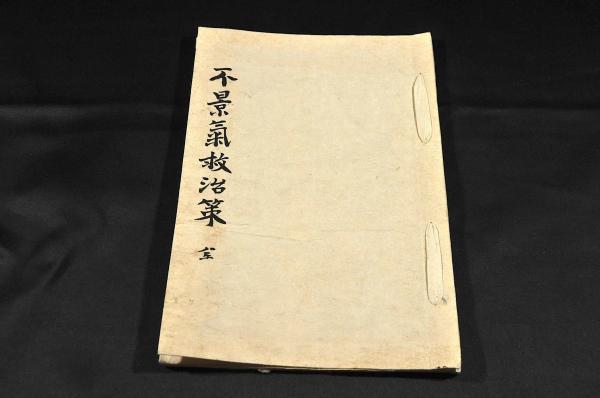 不景氣救治策 全